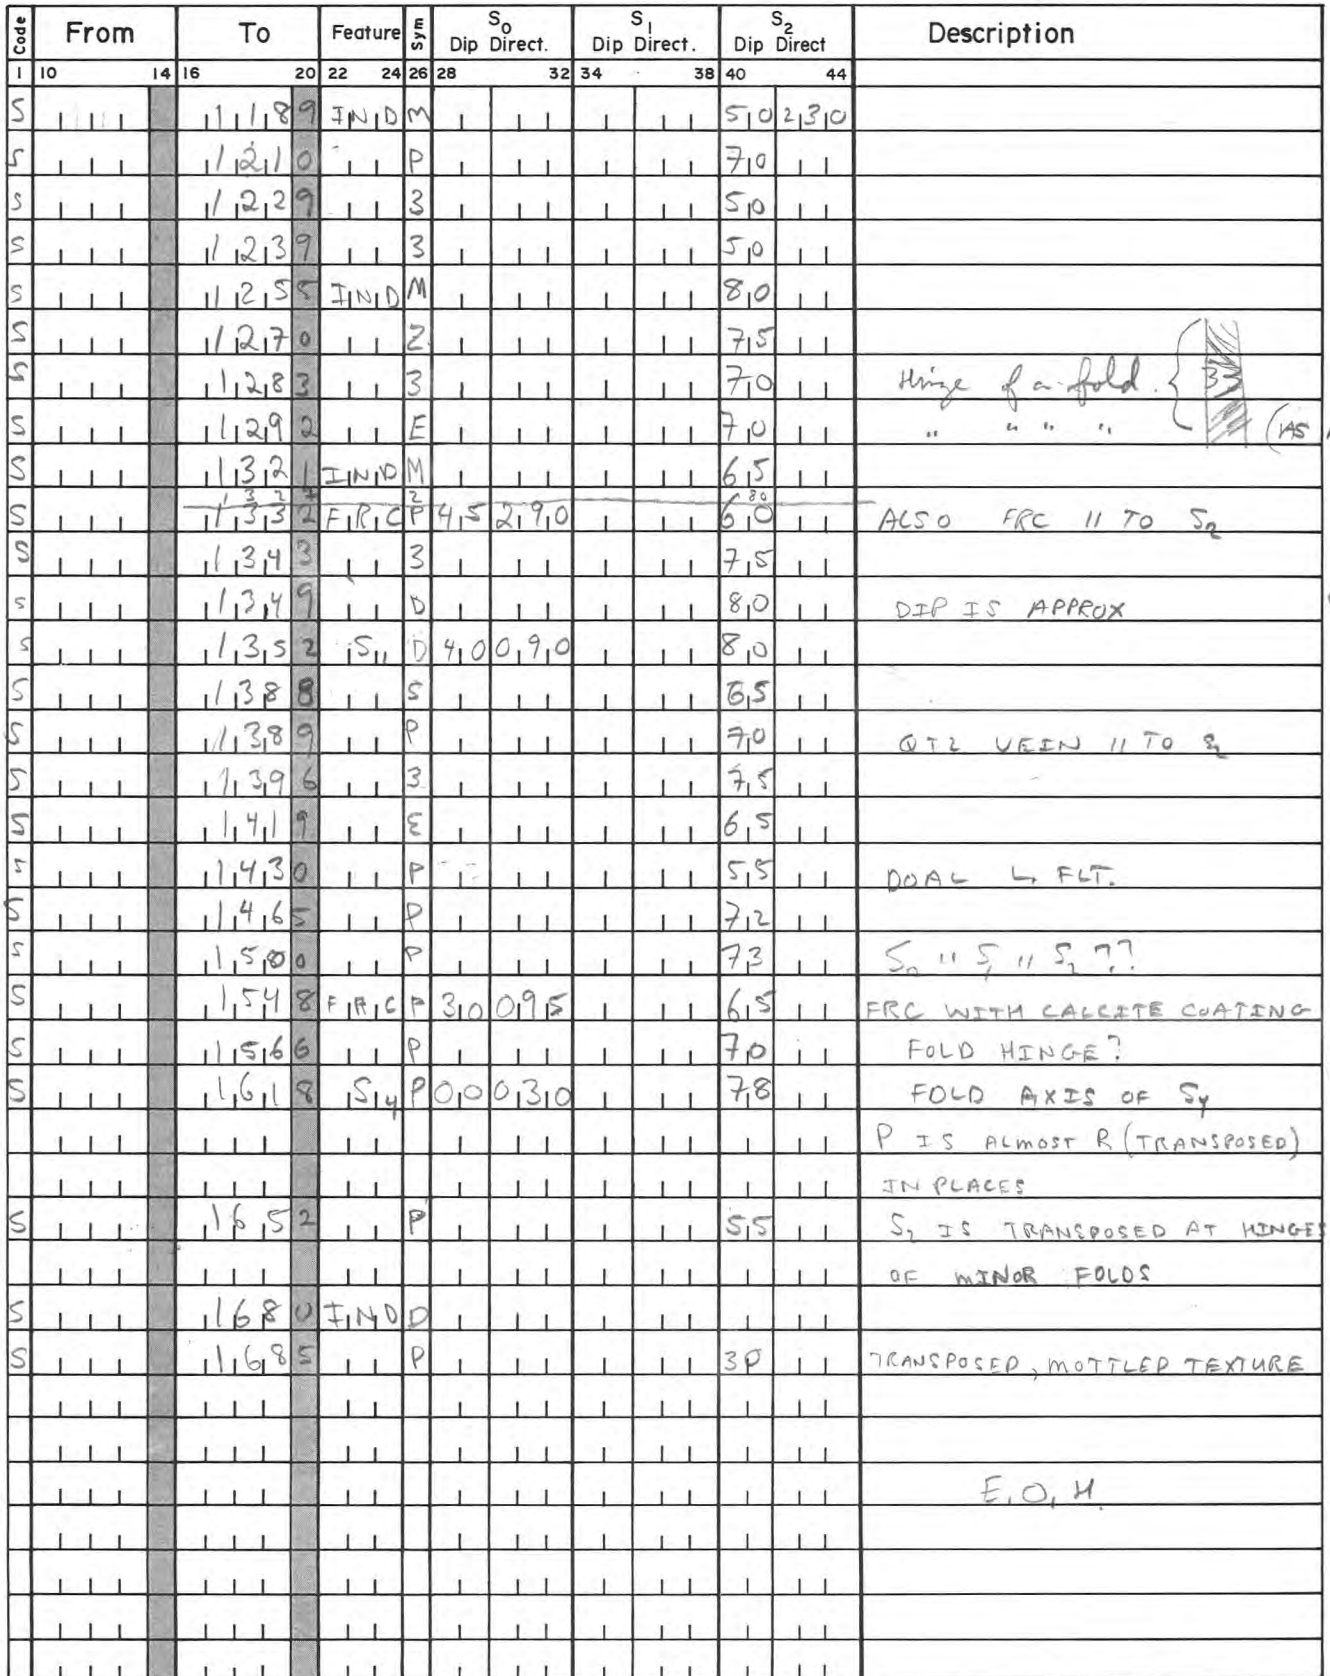 Code From To Feature Sym S0 Dip Direct. S1 Dip Direct. S2 Dip Direct Description
1 10 14 16 20 22 24 26 28 32 34 38 40 44
S 1189 IND M 50 230
S 1210 P 70
S 1229 3 50
S 1239 3 50
S 1255 IND M 80
S 1270 Z 75
S 1283 3 70 Hinge of a fold.
S 1292 E 70 " " " " (AS
S 1321 IND M 65
1327 2 80
S 1332 FRC P 45 290 60 ALSO FRC // TO S2
S 1343 3 75
S 1349 D 80 DIP IS APPROX
S 1352 S11 D 40 090 80
S 1388 S 65
S 1389 P 70 QTZ VEIN // TO S2
S 1396 3 75
S 1419 E 65
S 1430 P 55 FLT.
S 1465 P 72
S 1500 P 73 S0 // S1 // S2 ??
S 1548 FRC P 30 095 65 FRC WITH CALCITE COATING
S 1566 P 70 FOLD HINGE?
S 1618 S4 P 00 030 78 FOLD AXIS OF S4
P IS ALMOST R (TRANSPOSED)
IN PLACES
S 1652 P 55 S2 IS TRANSPOSED AT HINGES
OF MINOR FOLDS
S 1680 IND D
S 1685 P 30 TRANSPOSED, MOTTLED TEXTURE
E.O.H.